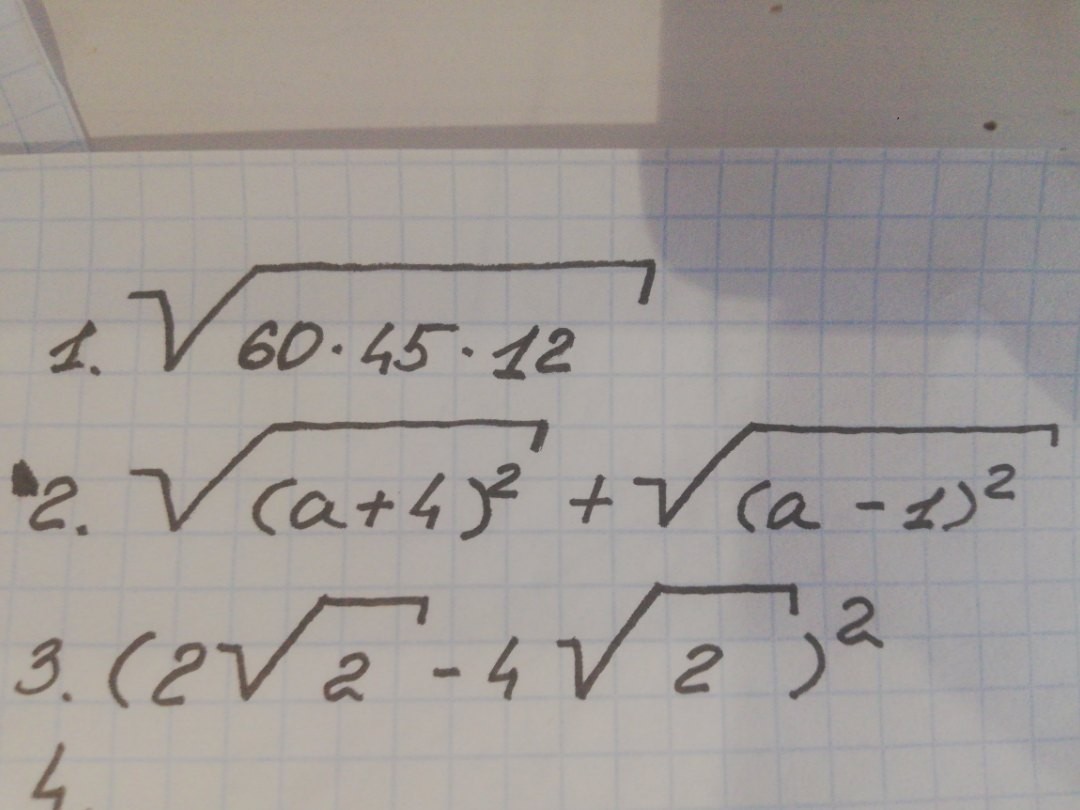 1. √(60·45·12)
2. √((a+4)²) + √((a-1)²)
3. (2√2 - 4√2)²
4.